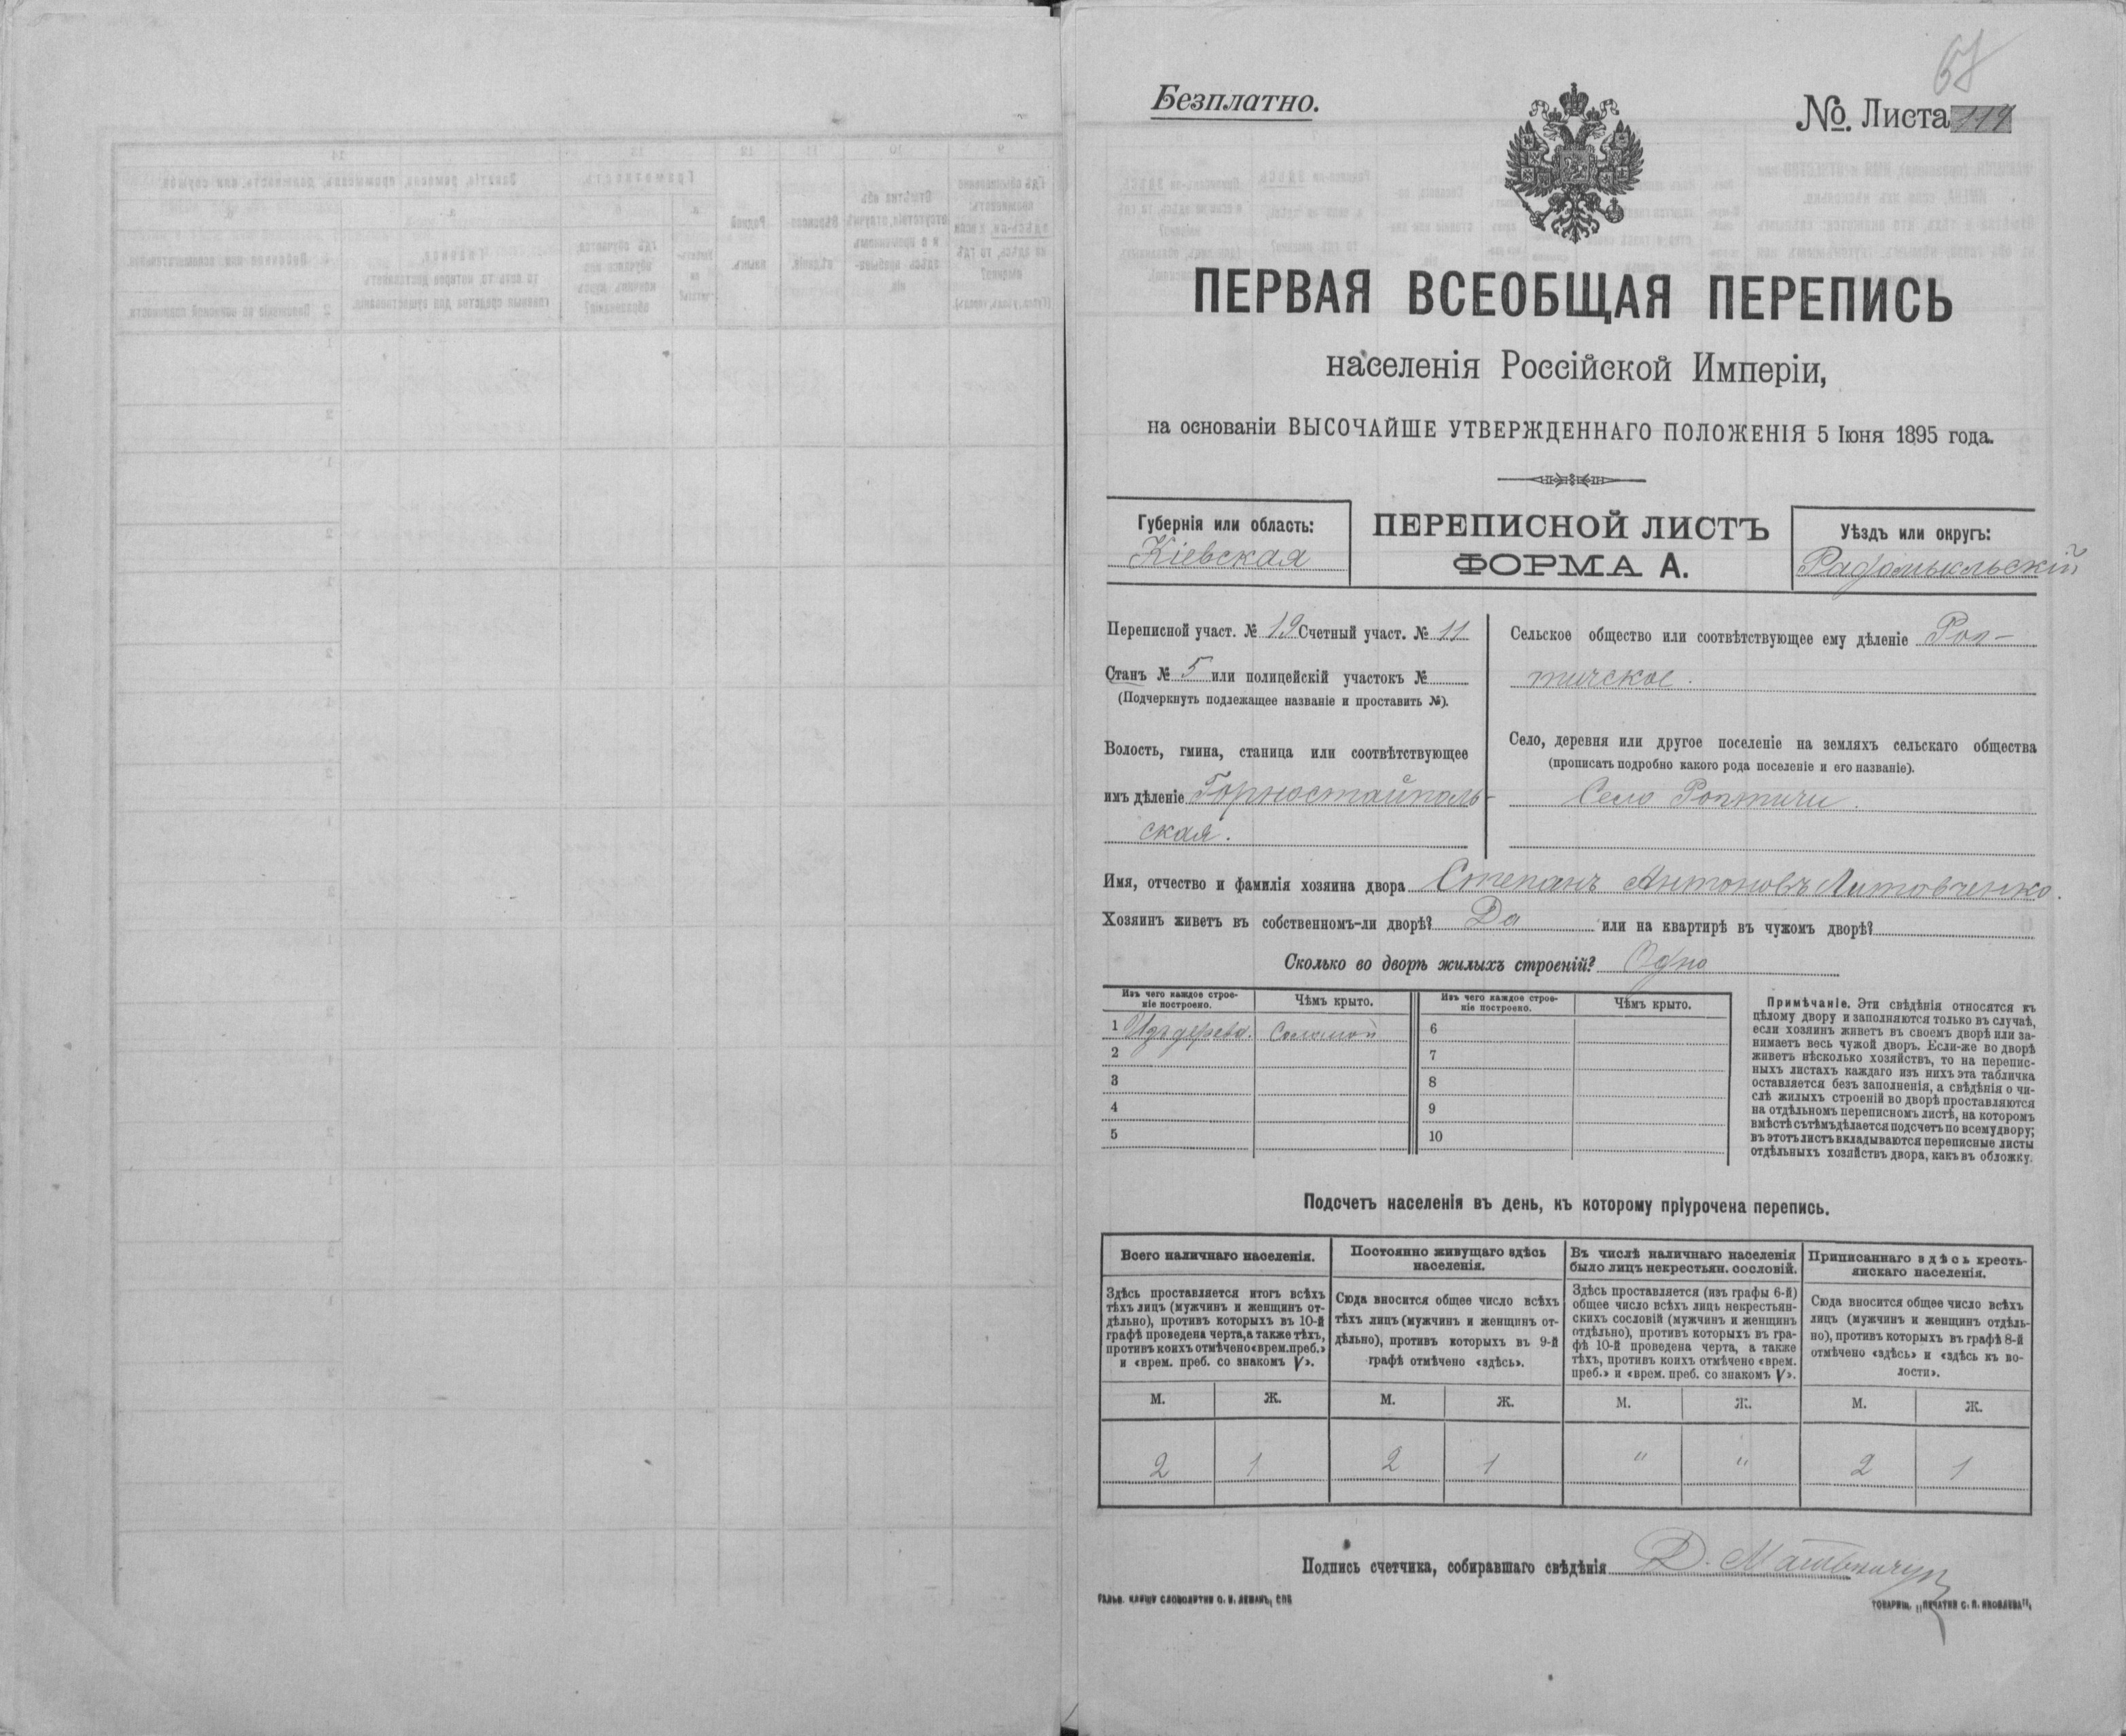 68
Безплатно.
№. Листа 114
ПЕРВАЯ ВСЕОБЩАЯ ПЕРЕПИСЬ
населенія Россійской Имперіи,
на основаніи ВЫСОЧАЙШЕ УТВЕРЖДЕННАГО ПОЛОЖЕНІЯ 5 Іюня 1895 года.
Губернія или область:
Кіевская
ПЕРЕПИСНОЙ ЛИСТЪ
ФОРМА А.
Уѣздъ или округъ:
Радомысльскій
Переписной участ. № 19 Счетный участ. № 11
Станъ № 5 или полицейскій участокъ №
(Подчеркнуть подлежащее названіе и проставить №).
Волость, гмина, станица или соотвѣтствующее
имъ дѣленіе Горностайполь-
ская.
Сельское общество или соотвѣтствующее ему дѣленіе Роп-
тичское.
Село, деревня или другое поселеніе на земляхъ сельскаго общества
(прописать подробно какого рода поселеніе и его названіе).
Село Роптичи.
Имя, отчество и фамилія хозяина двора Степанъ Антоновъ Литовченко.
Хозяинъ живетъ въ собственномъ-ли дворѣ? Да или на квартирѣ въ чужомъ дворѣ?
Сколько во дворѣ жилыхъ строеній? Одно
Изъ чего каждое строе-
ніе построено.
Чѣмъ крыто.
Изъ чего каждое строе-
ніе построено.
Чѣмъ крыто.
1 Изъ дерева. Соломой 6
2 7
3 8
4 9
5 10
Примѣчаніе. Эти свѣдѣнія относятся къ
цѣлому двору и заполняются только въ случаѣ,
если хозяинъ живетъ въ своемъ дворѣ или за-
нимаетъ весь чужой дворъ. Если-же во дворѣ
живетъ нѣсколько хозяйствъ, то на перепис-
ныхъ листахъ каждаго изъ нихъ эта табличка
оставляется безъ заполненія, а свѣдѣнія о чи-
слѣ жилыхъ строеній во дворѣ проставляются
на отдѣльномъ переписномъ листѣ, на которомъ
вмѣстѣ съ тѣмъ дѣлается подсчетъ по всему двору;
въ этотъ листъ вкладываются переписные листы
отдѣльныхъ хозяйствъ двора, какъ въ обложку.
Подсчетъ населенія въ день, къ которому пріурочена перепись.
Всего наличнаго населенія.
Здѣсь проставляется итогъ всѣхъ
тѣхъ лицъ (мужчинъ и женщинъ от-
дѣльно), противъ которыхъ въ 10-й
графѣ проведена черта, а также тѣхъ,
противъ коихъ отмѣчено «врем. преб.»
и «врем. преб. со знакомъ V».
Постоянно живущаго здѣсь
населенія.
Сюда вносится общее число всѣхъ
тѣхъ лицъ (мужчинъ и женщинъ от-
дѣльно), противъ которыхъ въ 9-й
графѣ отмѣчено «здѣсь».
Въ числѣ наличнаго населенія
было лицъ некрестьян. сословій.
Здѣсь проставляется (изъ графы 6-й)
общее число всѣхъ лицъ некрестьян-
скихъ сословій (мужчинъ и женщинъ
отдѣльно), противъ которыхъ въ гра-
фѣ 10-й проведена черта, а также
тѣхъ, противъ коихъ отмѣчено «врем.
преб.» и «врем. преб. со знакомъ V».
Приписаннаго здѣсь кресть-
янскаго населенія.
Сюда вносится общее число всѣхъ
лицъ (мужчинъ и женщинъ отдѣль-
но), противъ которыхъ въ графѣ 8-й
отмѣчено «здѣсь» и «здѣсь къ во-
лости».
М. Ж. М. Ж. М. Ж. М. Ж.
2 1 2 1 " " 2 1
Подпись счетчика, собиравшаго свѣдѣнія Д.
ГАЛЬВ. КЛИШЕ СЛОВОЛИТНИ О. И. ЛЕМАНЪ, СПБ
ТОВАРИЩ. „ПЕЧАТНЯ С. П. ЯКОВЛЕВА",